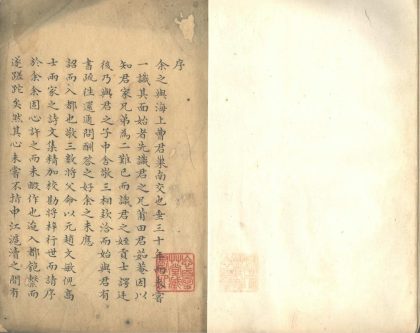 序
余之與海上曹君巢南交也垂三十年而未嘗
一識其面始者先識君之兄莆田君茹菴因以
知君家兄弟為二難已而識君之姪貢士諤廷
後乃與君之子中舍敬三相欵洽而始與君有
書疏往還通問酬答之好余之未應
詔而入都也敬三數將父命以元趙文敏倪高
士兩家之詩文集精加校勘將梓行世而請序
於余余固心許之而未暇作也逮入都匏繫而
遂蹉跎矣然其心未嘗不持申江滬瀆之間有